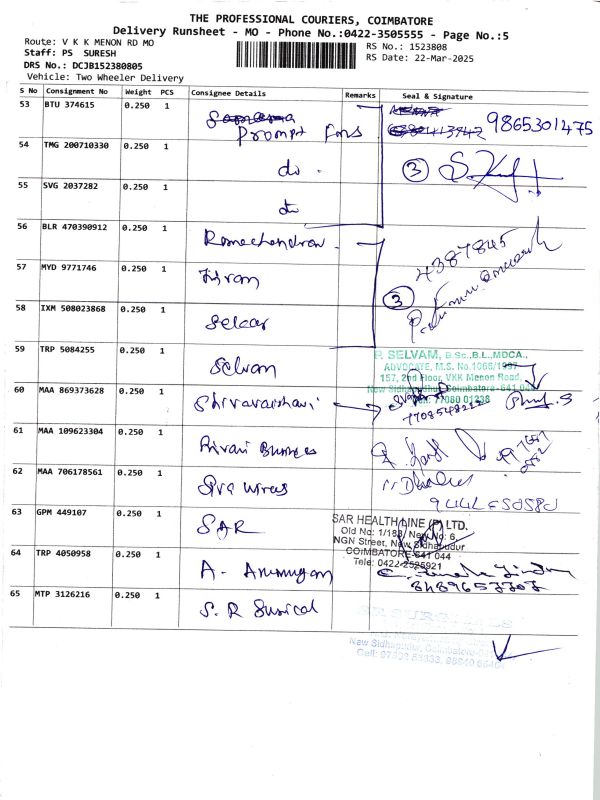 THE PROFESSIONAL COURIERS, COIMBATORE
Delivery Runsheet - MO - Phone No.:0422-3505555 - Page No.:5
Route: V K K MENON RD MO
RS No.: 1523808
Staff: PS SURESH
RS Date: 22-Mar-2025
DRS No.: DCJB152380805
Vehicle: Two Wheeler Delivery
S No Consignment No Weight PCS Consignee Details Remarks Seal & Signature
53 BTU 374615 0.250 1 Prompt Fns 9865301475
54 TMG 200710330 0.250 1 do. 3
55 SVG 2037282 0.250 1 do
56 BLR 470390912 0.250 1 Ramachandran 4387845
57 MYD 9771746 0.250 1 3
58 IXM 508023868 0.250 1 Selvar
59 TRP 5084255 0.250 1 Selvan
P. SELVAM, B.Sc.,B.L.,MDCA.,
ADVOCATE, M.S. No.1066/1997
157, 2nd Floor, VKK Menon Road,
New Sidhapudur, Coimbatore-641 044
Cell: 77080 01238
60 MAA 869373628 0.250 1 Shivavarshani
61 MAA 109623304 0.250 1 Business
62 MAA 706178561 0.250 1 Siva wires
63 GPM 449107 0.250 1 SAR
SAR HEALTHLINE (P) LTD.
Old No: 1/183, New No: 6,
NGN Street, New Sidhapudur
COIMBATORE-641 044
Tele: 0422-2525921
64 TRP 4050958 0.250 1 A. Arumugam
65 MTP 3126216 0.250 1 S. R Surgical
New Sidhapudur, Coimbatore